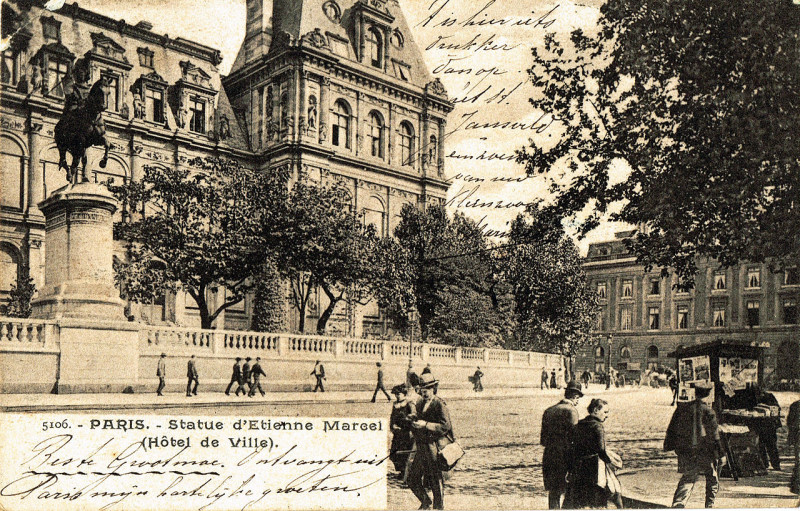 'tis hier iets
drukker
dan op
et St.
van
5106. - PARIS. - Statue d'Etienne Marcel
(Hôtel de Ville).
Beste Grootmoe. Ontvangt uit
Parijs mijn hartelijke groeten.